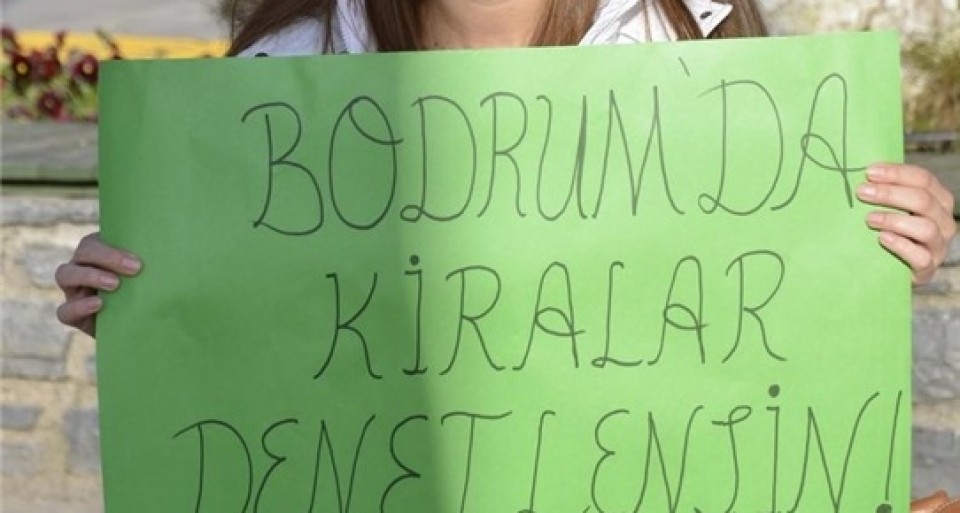 BODRUM'DA
KİRALAR
DENETLENSİN!